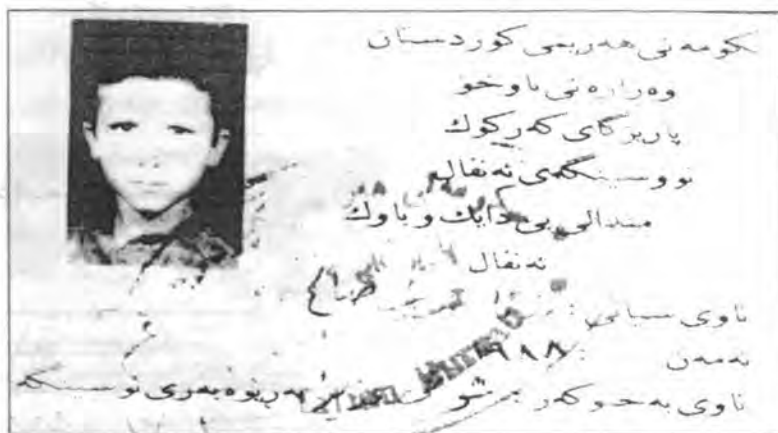 حكومەتی هەرێمی كوردستان
وەزارەتی ناوخۆ
پارێزگای كەركوك
نووسینگەی ئەنفال
منداڵی بێ دایك و باوك
ئەنفال
ناوی سیانی : صالح
تەمەن : ١٩٨٨
ناوی بەخێوكەر : بەڕێوەبەری نوسینگە